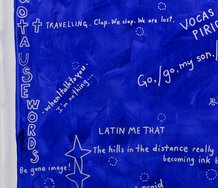 TRAVELLING. Clap. We clap. We are lost.
VOCAS
PIRIC
Go,/go, my son,/
when I talk to you.
I'm nothing...
USE
WORDS
LATIN ME THAT
The hills in the distance really
becoming ink b
Be gone image!